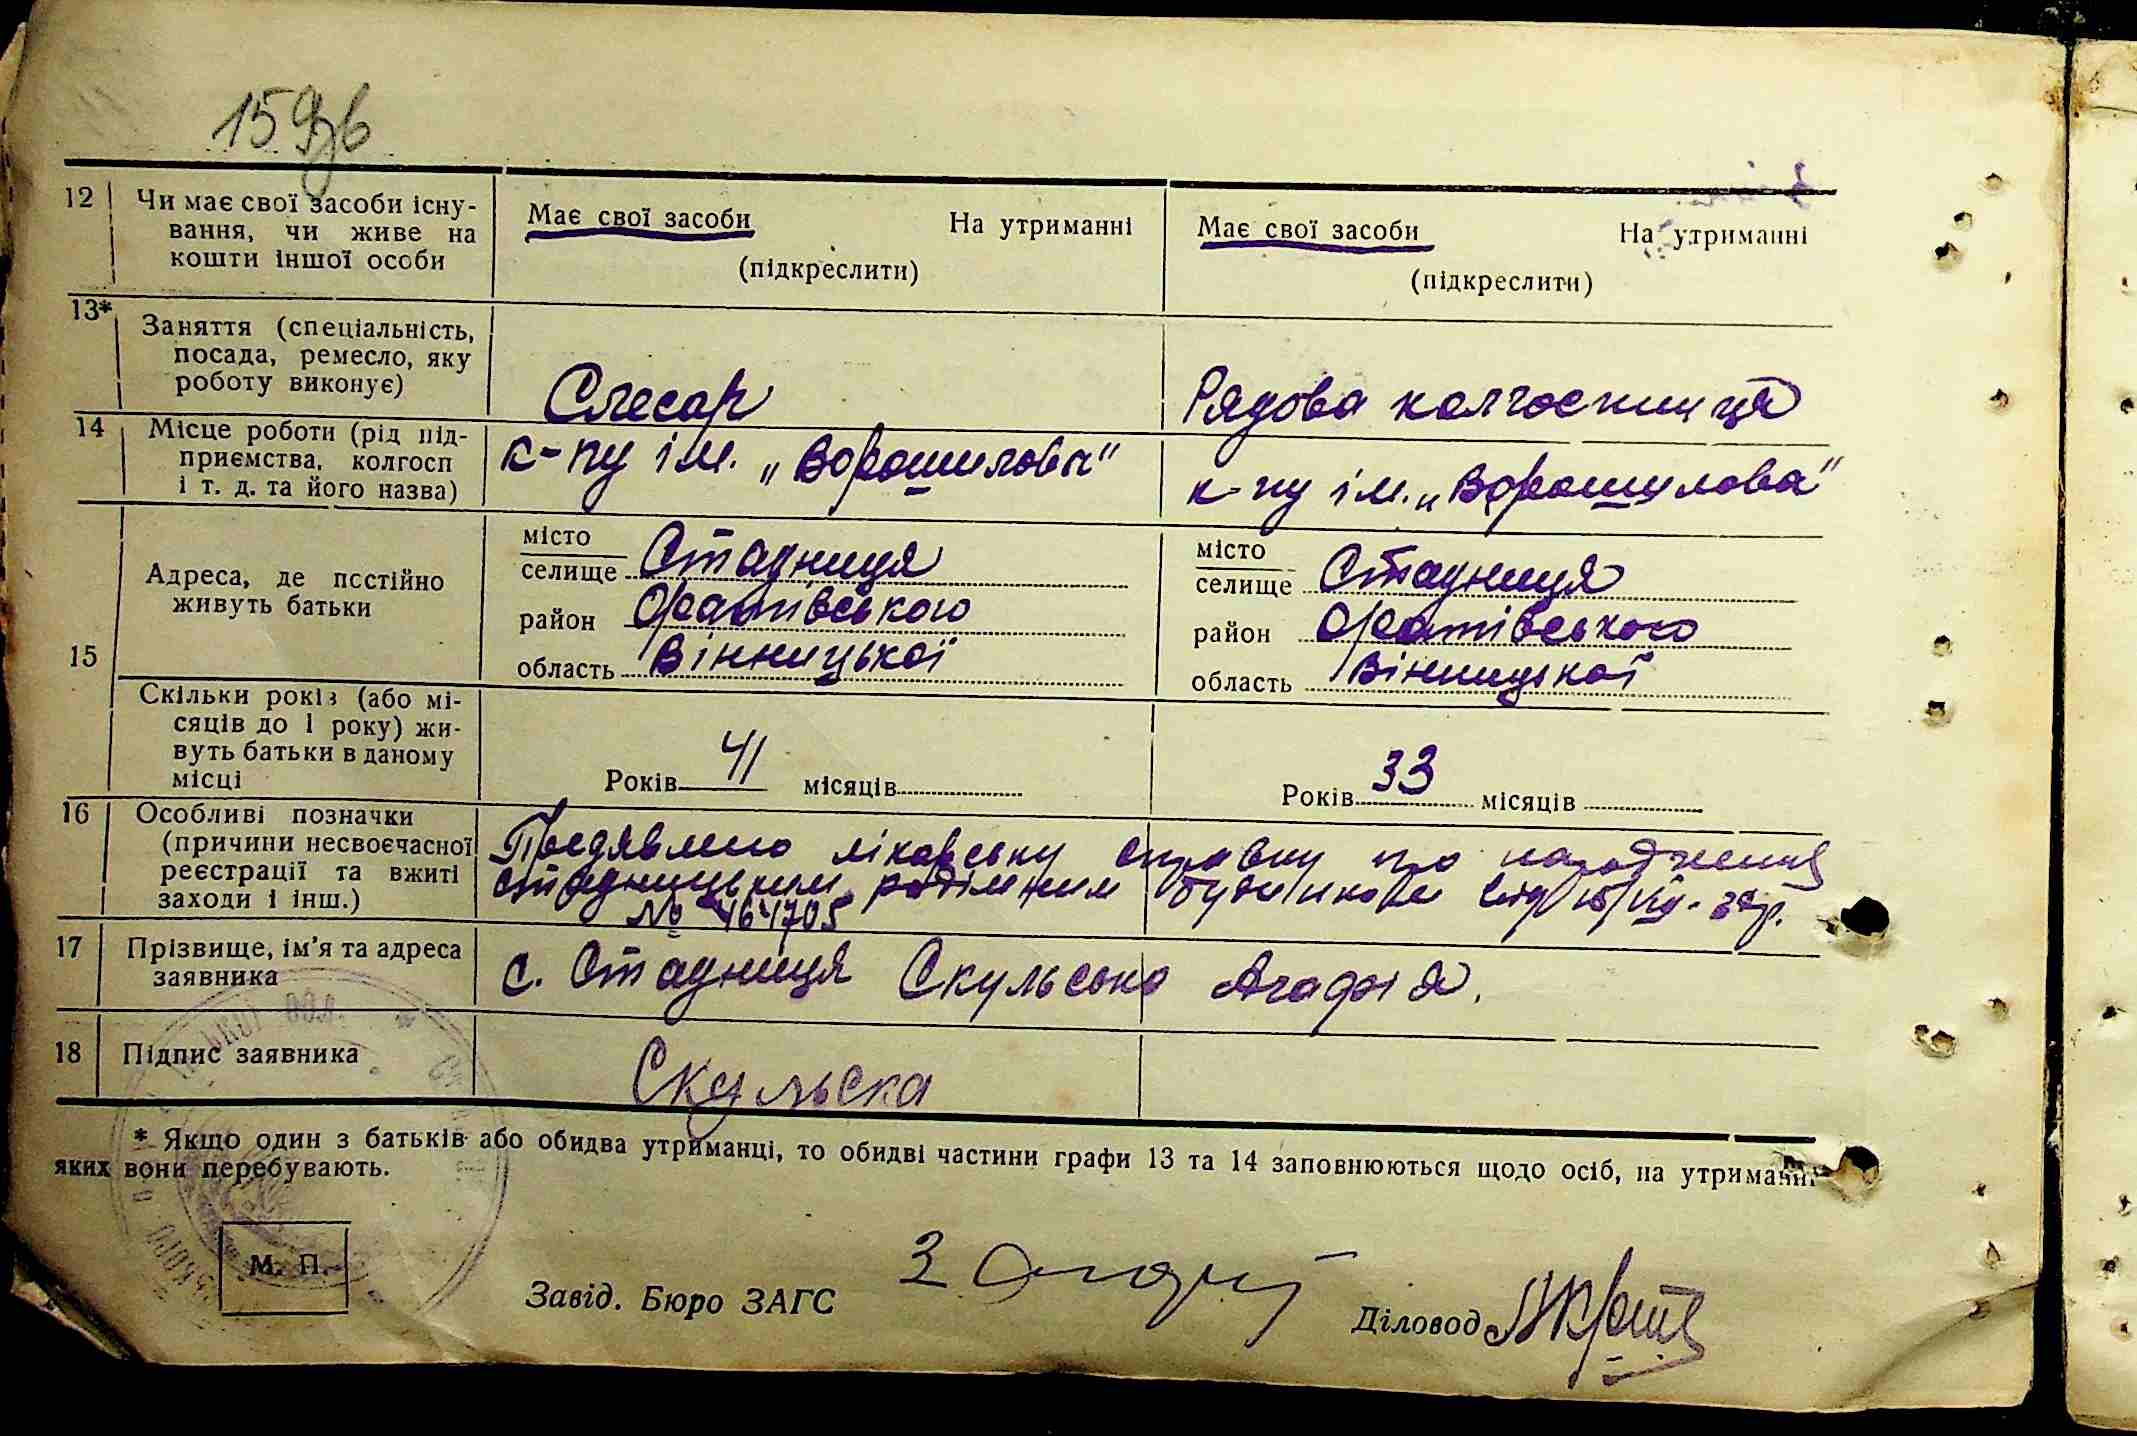 159зв
12 Чи має свої засоби існу-
вання, чи живе на
кошти іншої особи
Має свої засоби На утриманні
(підкреслити)
Має свої засоби На утриманні
(підкреслити)
13* Заняття (спеціальність,
посада, ремесло, яку
роботу виконує)
Слесар
Рядова колгоспниця
14 Місце роботи (рід під-
приємства, колгосп
і т. д. та його назва)
к-пу ім. „Ворошилова"
к-пу ім. „Ворошилова"
15 Адреса, де постійно
живуть батьки
місто
селище Стадниця
район Оратівського
область Вінницької
місто
селище Стадниця
район Оратівського
область Вінницької
Скільки років (або мі-
сяців до 1 року) жи-
вуть батьки в даному
місці
Років 41 місяців
Років 33 місяців
16 Особливі позначки
(причини несвоєчасної
реєстрації та вжиті
заходи і інш.)
Предявлено лікарську справку про народження
стадницьким родільним будинком від
№ 464705
17 Прізвище, ім'я та адреса
заявника
с. Стадниця Скульська Агафія.
18 Підпис заявника
Скульска
* Якщо один з батьків або обидва утриманці, то обидві частини графи 13 та 14 заповнюються щодо осіб, на утриманні
яких вони перебувають.
М. П.
Завід. Бюро ЗАГС
Діловод